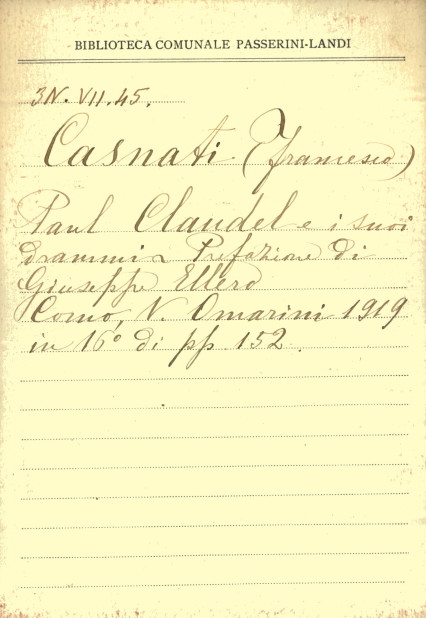 BIBLIOTECA COMUNALE PASSERINI-LANDI
3N. VII. 45.
Casnati (Francesco)
Paul Claudel e i suoi
drammi ~ Prefazione di
Giuseppe Ellero
Como, V. Omarini 1919
in 16° di pp 152.